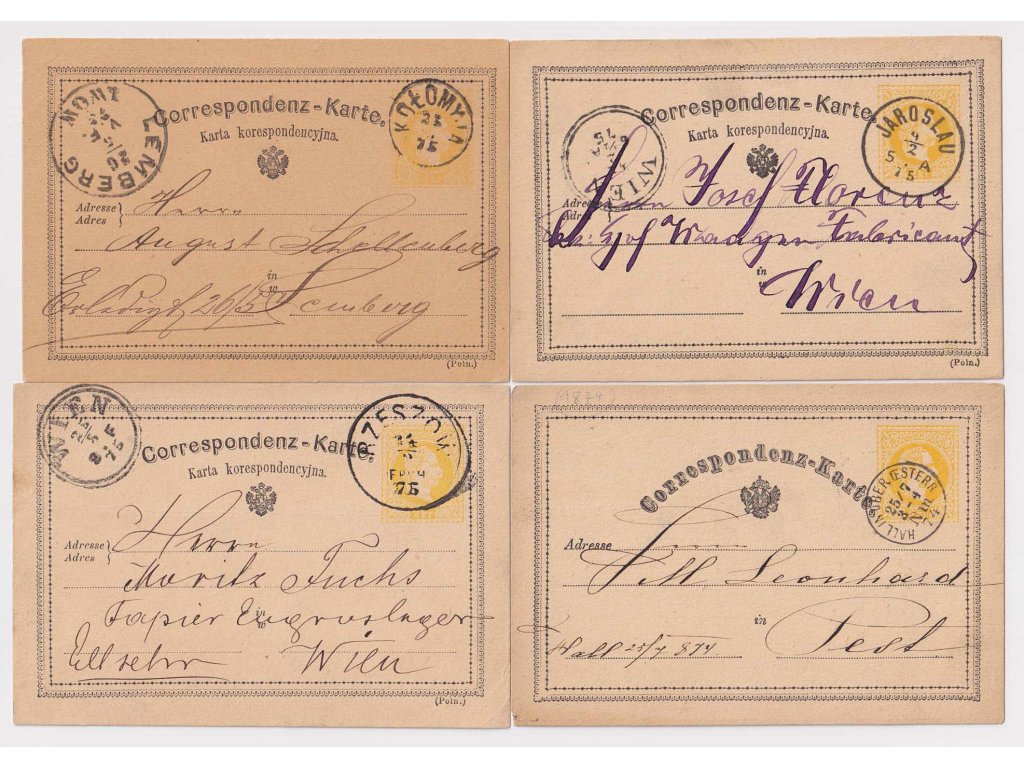 LEMBERG
LWOW
Correspondenz-Karte.
Karta korespondencyjna.
KOŁOMYJA
75
Adresse
Adres
Herrn
August Schellenberg
in
w
Erledigt 26/5 Lemberg
(Poln.)
Correspondenz-Karte.
Karta korespondencyjna.
WIEN
75
JAROSLAU
4/2
5 A
75
Adresse
Adres
Herrn Josef Florenz
k.k. Hof Waagen Fabricant
in
Wien
(Poln.)
WIEN
Correspondenz-Karte.
Karta korespondencyjna.
RZESZÓW
FRÜH
75
Adresse
Adres
Herrn
Moritz Fuchs
Papier Engroslager
in
w
Wien
(Poln.)
(1874)
Correspondenz-Karte.
HALL IN OBER ÖSTERR.
25/7
74
Adresse
Leonhard
in
Pest
Hall 25/7 874